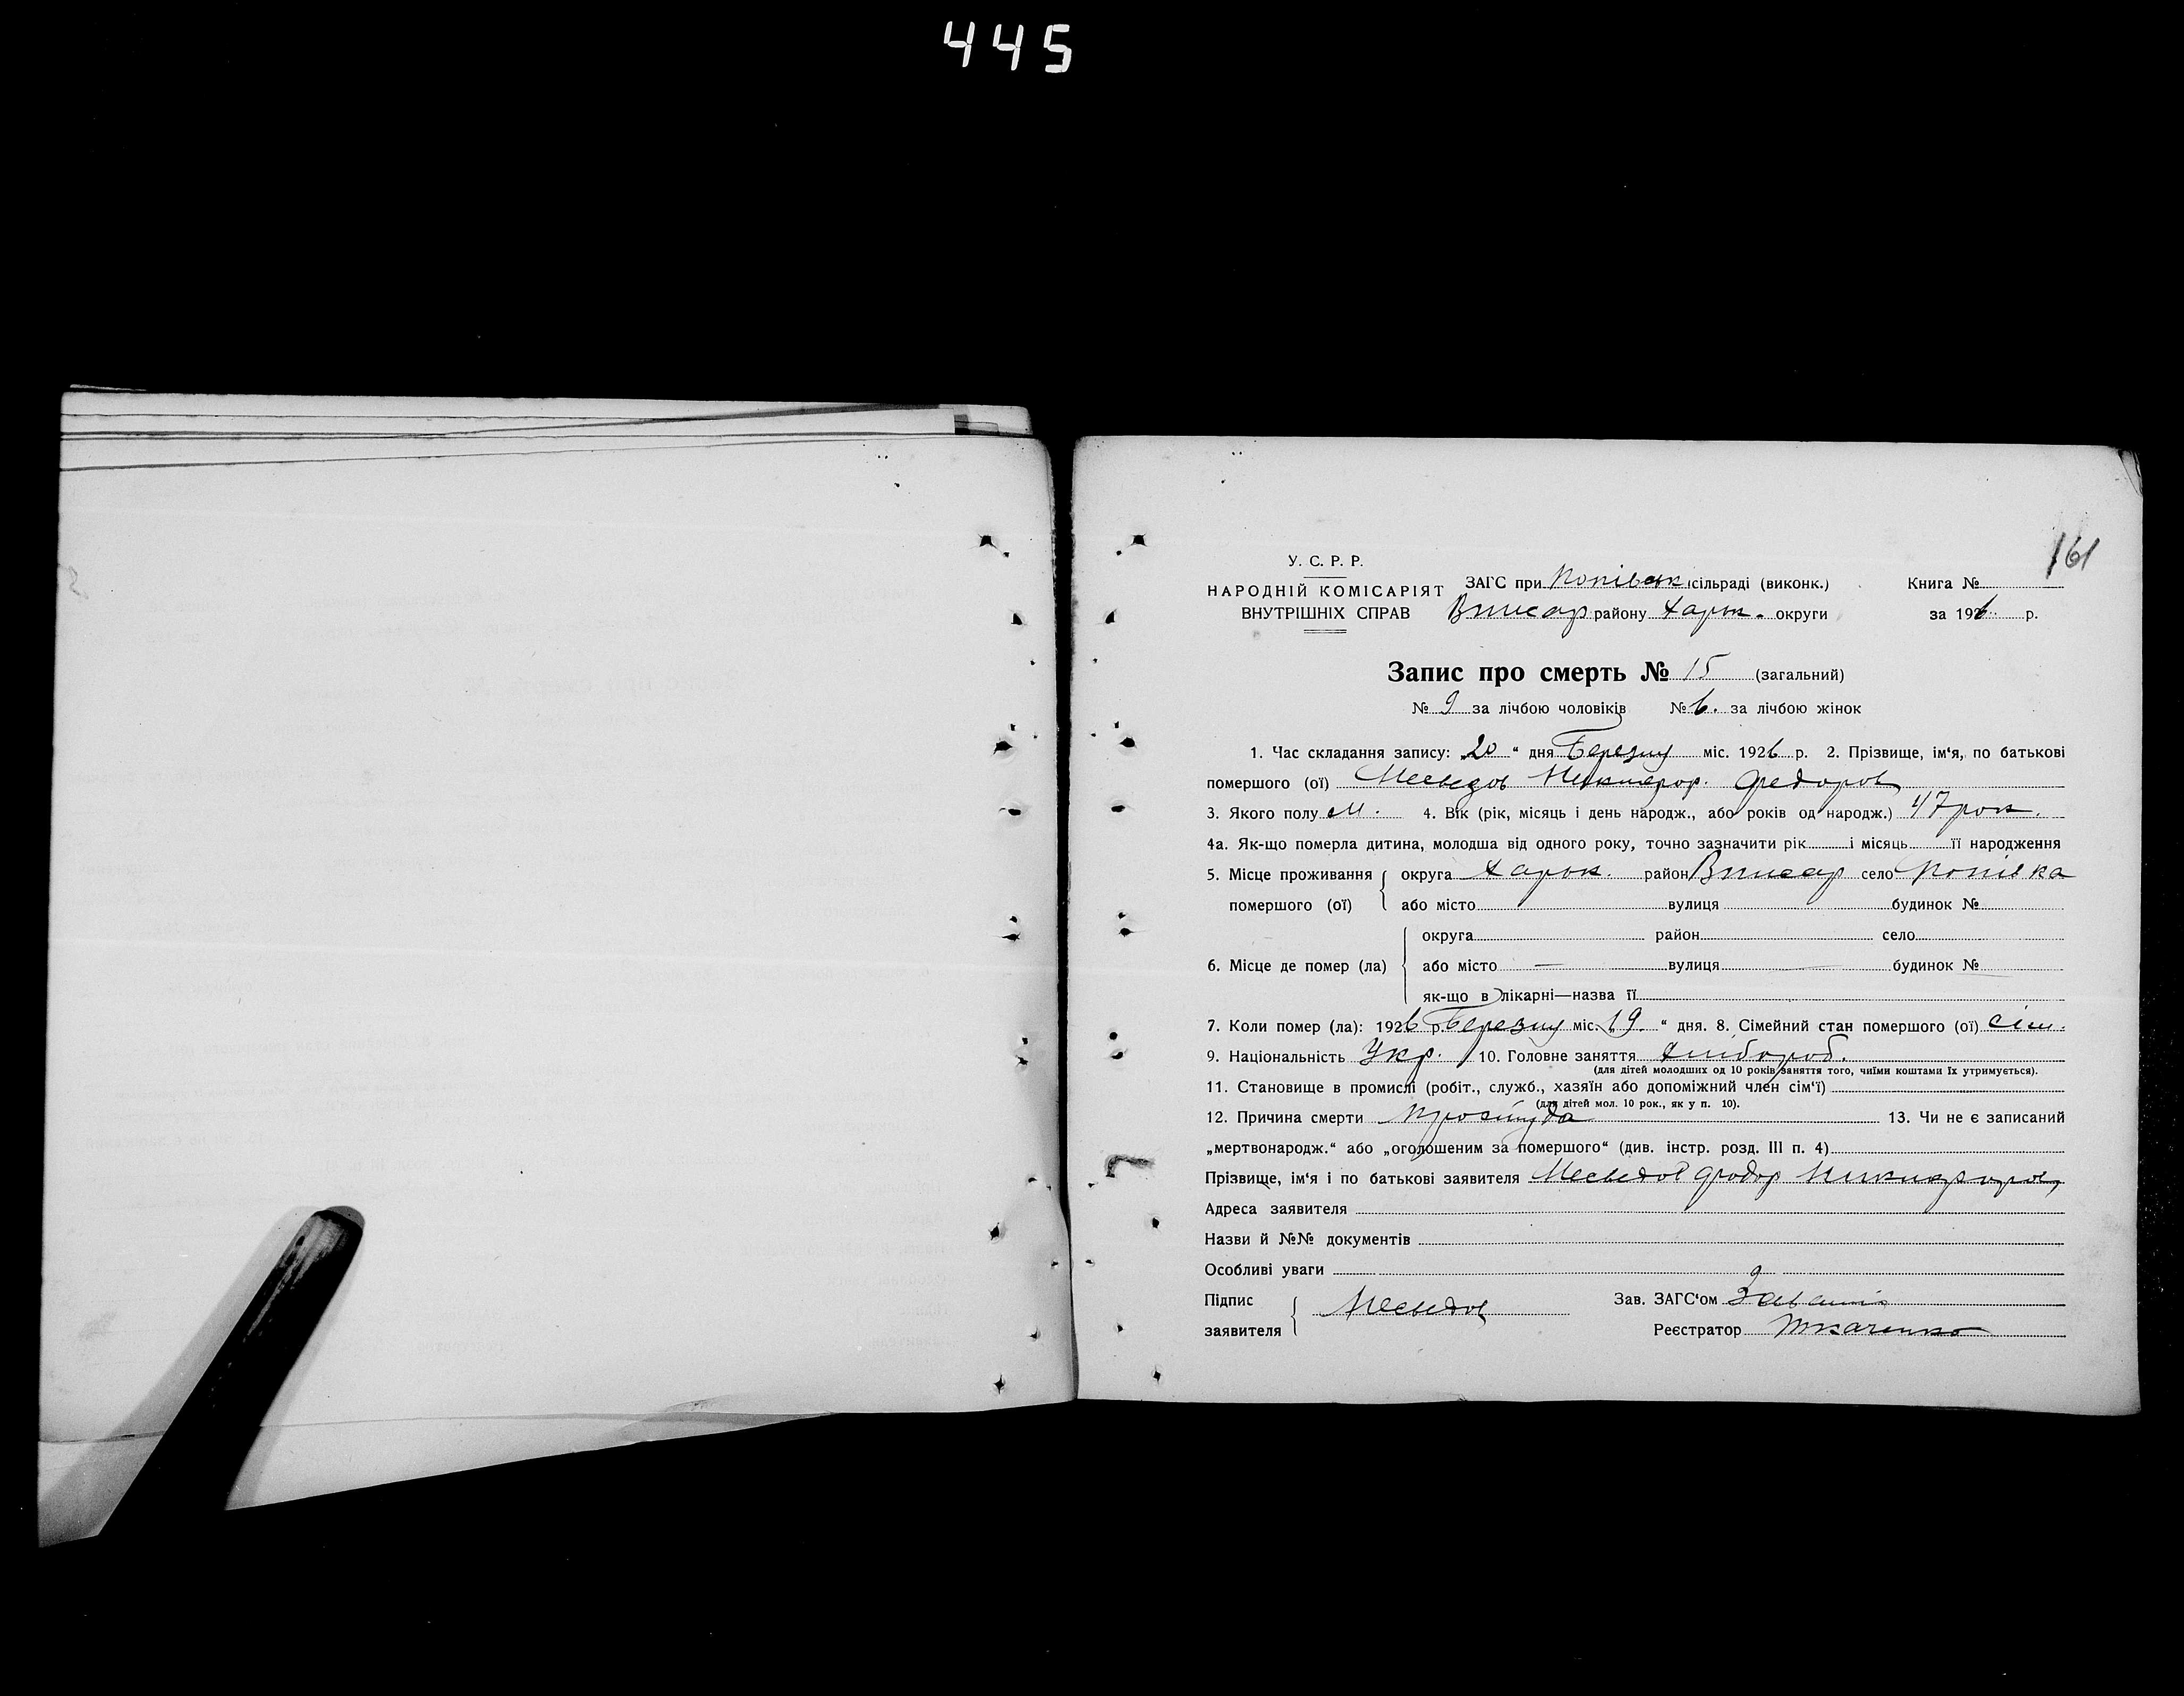 445
161
У. С. Р. Р.
НАРОДНІЙ КОМІСАРІЯТ
ВНУТРІШНІХ СПРАВ
ЗАГС при Попівськ сільраді (виконк.)
району Харк. округи
Книга №
за 1926 р.
Запис про смерть № 15 (загальний)
№ 9 за лічбою чоловіків № 6. за лічбою жінок
1. Час складання запису: „20“ дня Березня міс. 1926 р. 2. Прізвище, ім‘я, по батькові
помершого (ої) Никифор. Федоров
3. Якого полу М. 4. Вік (рік, місяць і день народж., або років од народж.) 47 рок.
4а. Як-що померла дитина, молодша від одного року, точно зазначити рік і місяць її народження
5. Місце проживання помершого (ої) округа Харк. район село Попівка
або місто вулиця будинок №
6. Місце де помер (ла) округа район село
або місто — вулиця — будинок №
як-що в лікарні—назва її
7. Коли помер (ла): 1926 р. Березня міс. „19“ дня. 8. Сімейний стан помершого (ої) сім.
9. Національність Укр. 10. Головне заняття хлібороб.
(для дітей молодших од 10 років заняття того, чиїми коштами їх утримується).
11. Становище в промислі (робіт., служб., хазяїн або допоміжний член сім‘ї)
(для дітей мол. 10 рок., як у п. 10).
12. Причина смерти простуда 13. Чи не є записаний
„мертвонародж.“ або „оголошеним за помершого“ (див. інстр. розд. III п. 4)
Прізвище, ім‘я і по батькові заявителя
Адреса заявителя
Назви й №№ документів
Особливі уваги
Підпис заявителя
Зав. ЗАГС‘ом
Реєстратор Ткаченко